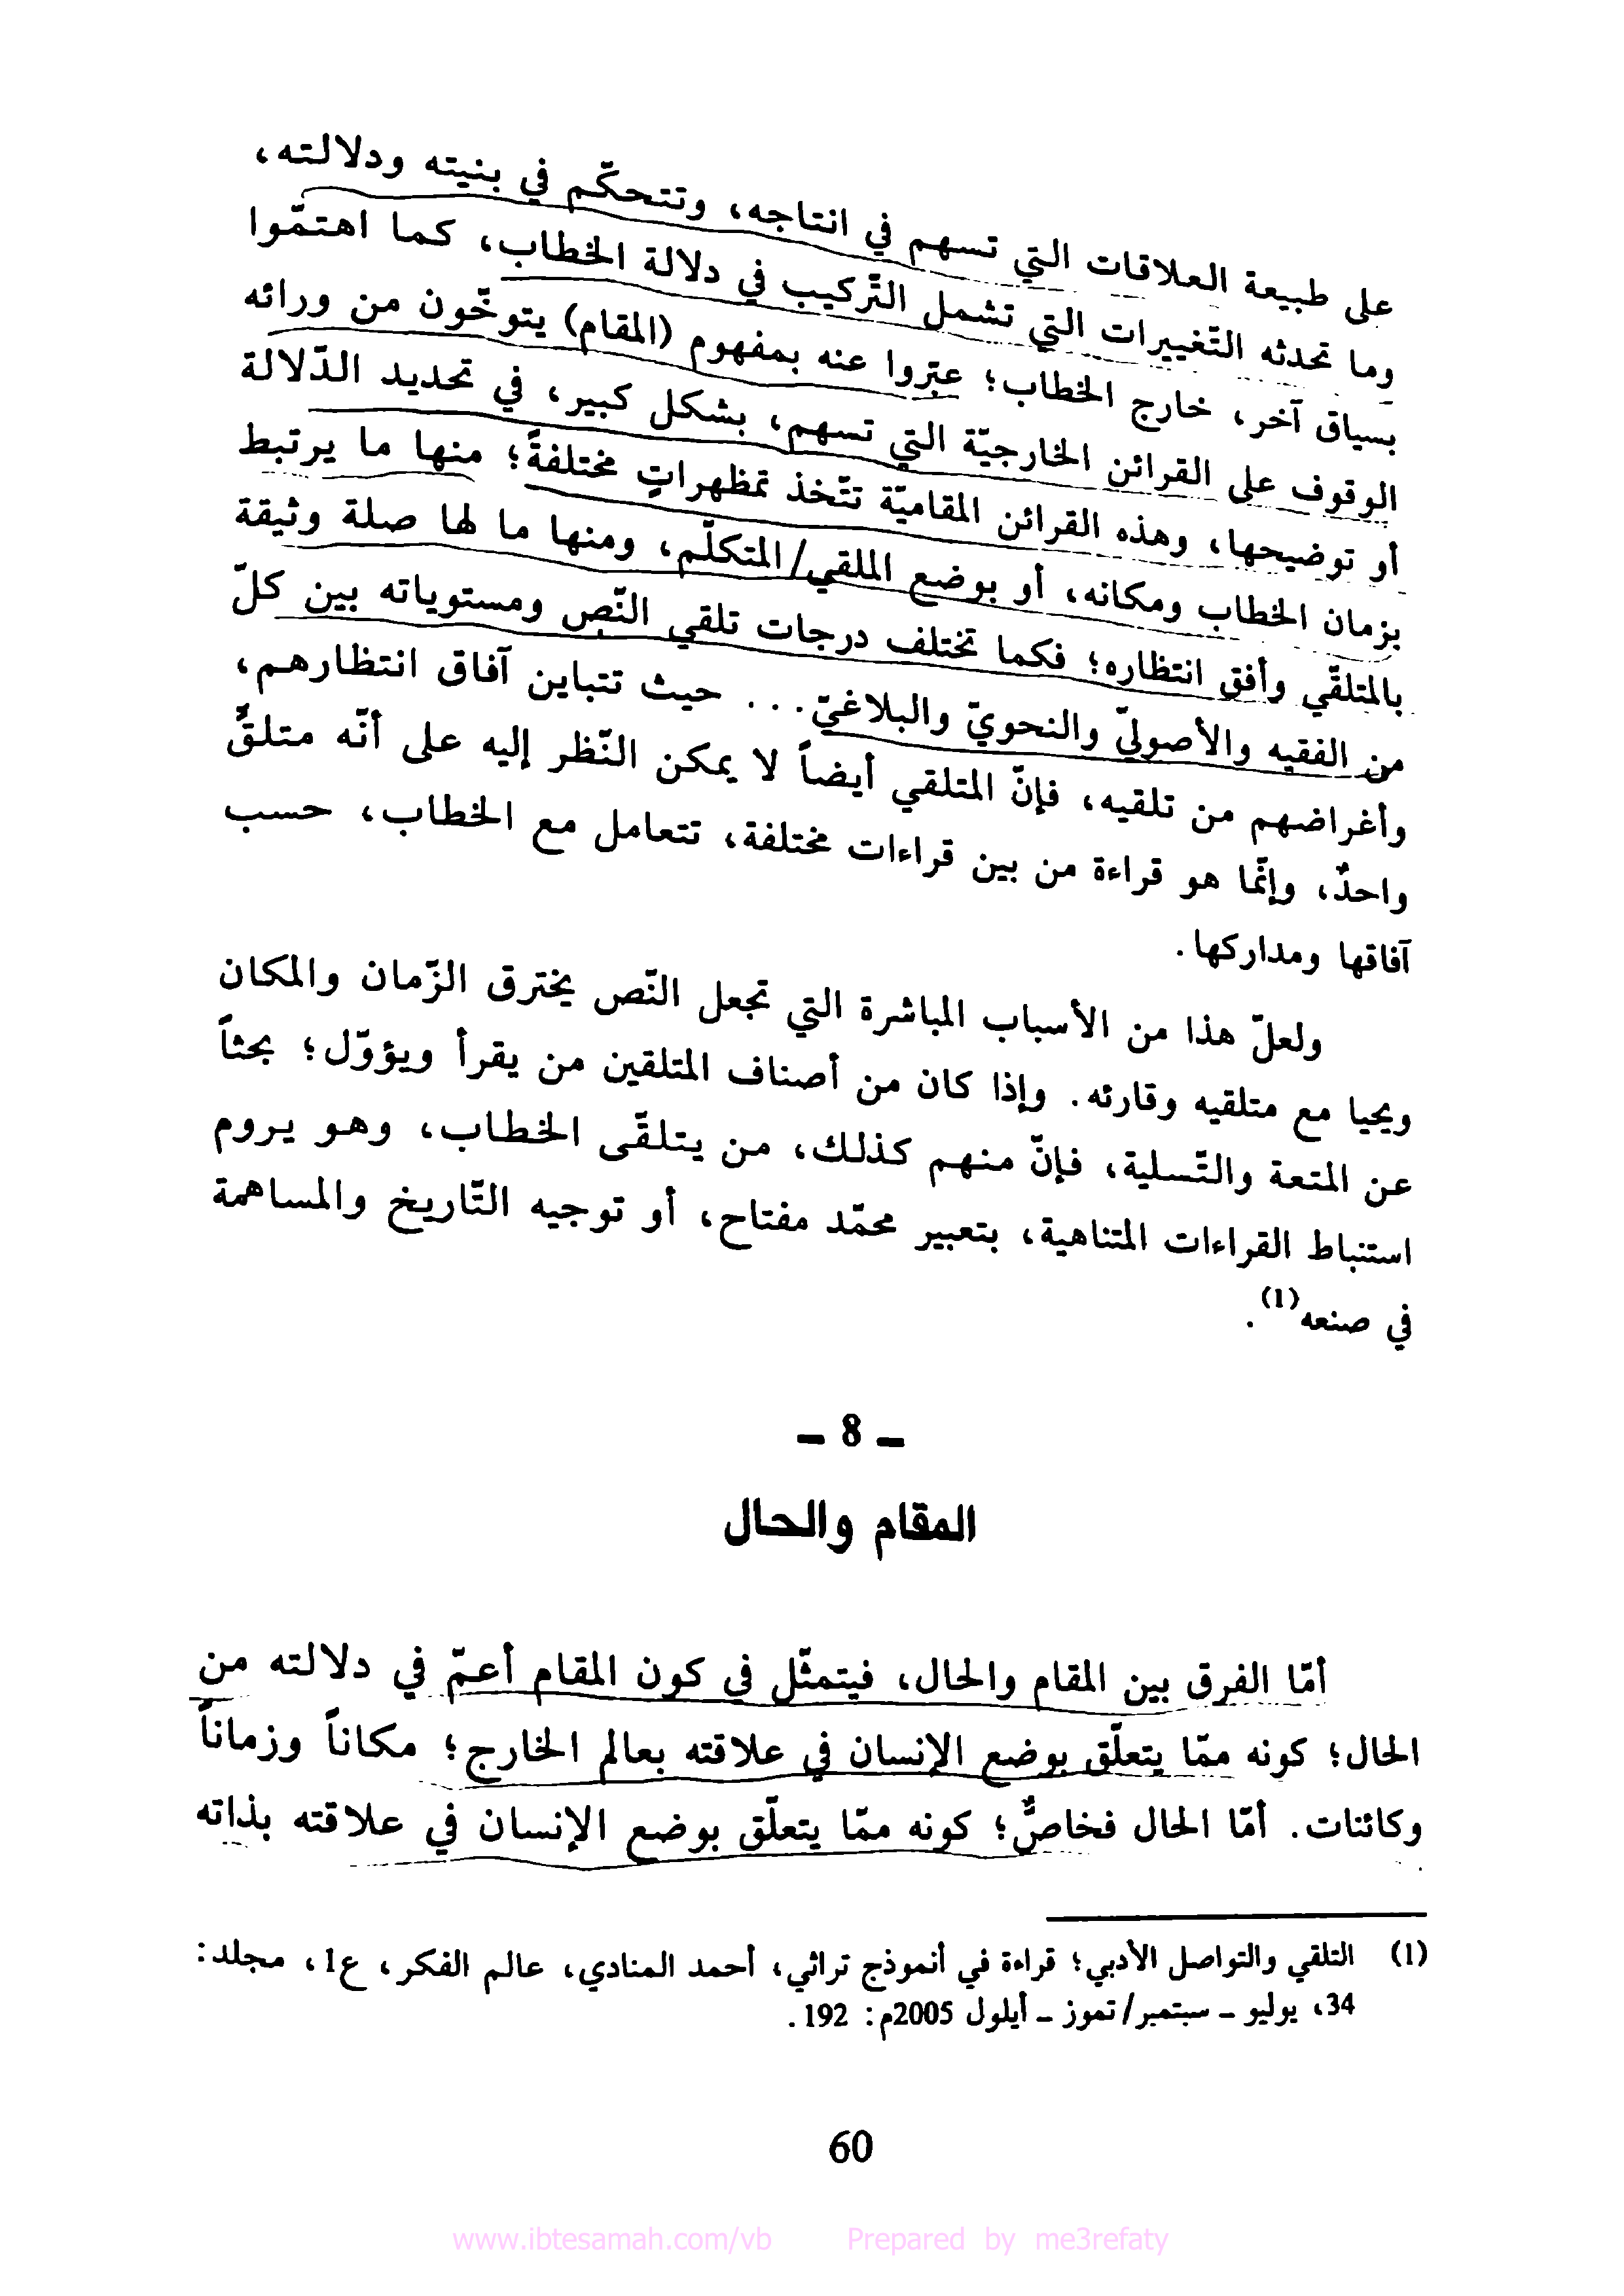 على طبيعة العلاقات التي تسهم في انتاجه، وتتحكّم في بنيته ودلالته،
وما تحدثه التّغييرات التي تشمل التّركيب في دلالة الخطاب، كما اهتمّوا
بسياق آخر، خارج الخطاب؛ عبّروا عنه بمفهوم (المقام) يتوخّون من ورائه
الوقوف على القرائن الخارجيّة التي تسهم، بشكل كبير، في تحديد الدّلالة
أو توضيحها، وهذه القرائن المقاميّة تتّخذ تمظهراتٍ مختلفةً؛ منها ما يرتبط
بزمان الخطاب ومكانه، أو بوضع الملقي/المتكلّم، ومنها ما لها صلة وثيقة
بالمتلقّي وأفق انتظاره؛ فكما تختلف درجات تلقي النّص ومستوياته بين كلّ
من الفقيه والأصوليّ والنحويّ والبلاغيّ... حيث تتباين آفاق انتظارهم،
وأغراضهم من تلقيه، فإنّ المتلقي أيضاً لا يمكن النّظر إليه على أنّه متلقٍّ
واحدٌ، وإنّما هو قراءة من بين قراءات مختلفة، تتعامل مع الخطاب، حسب
آفاقها ومداركها.
ولعلّ هذا من الأسباب المباشرة التي تجعل النّص يخترق الزّمان والمكان
ويحيا مع متلقيه وقارئه. وإذا كان من أصناف المتلقين من يقرأ ويؤوّل؛ بحثاً
عن المتعة والتّسلية، فإنّ منهم كذلك، من يتلقّى الخطاب، وهو يروم
استنباط القراءات المتناهية، بتعبير محمّد مفتاح، أو توجيه التّاريخ والمساهمة
في صنعه(1).
ـ 8 ـ
المقام والحال
أمّا الفرق بين المقام والحال، فيتمثّل في كون المقام أعمّ في دلالته من
الحال؛ كونه ممّا يتعلّق بوضع الإنسان في علاقته بعالم الخارج؛ مكاناً وزماناً
وكائنات. أمّا الحال فخاصٌّ؛ كونه ممّا يتعلّق بوضع الإنسان في علاقته بذاته
(1) التلقي والتواصل الأدبي؛ قراءة في أنموذج تراثي، أحمد المنادي، عالم الفكر، ع1، مجلد:
34، يوليو ـ سبتمبر/تموز ـ أيلول 2005م: 192.
60
www.ibtesamah.com/vb Prepared by me3refaty